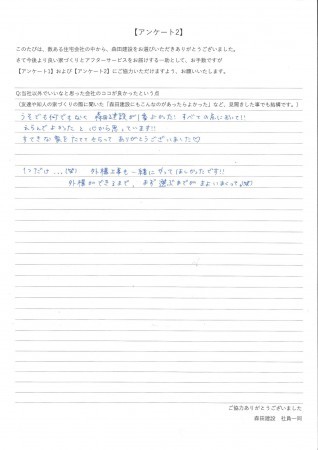 【アンケート2】
このたびは、数ある住宅会社の中から、森田建設をお選びいただきありがとうございました。
さて今後より良い家づくりとアフターサービスをお届けする一助として、お手数ですが
【アンケート1】および【アンケート2】にご協力いただけますよう、お願いいたします。
Q:当社以外でいいなと思った会社のココが良かったという点
（友達や知人の家づくりの際に聞いた「森田建設にもこんなのがあったらよかった」など、見聞きした事でも結構です。）
うそでも何でもなく 森田建設が1番よかった! すべての点において!!
えらんでよかったと心から思っています!!
すてきな家をたててもらって ありがとうございました♡
1つだけ... 外構工事も一緒にやってほしかったです!!
外構ができるまで、 まず選ぶまでが
ご協力ありがとうございました
森田建設 社員一同